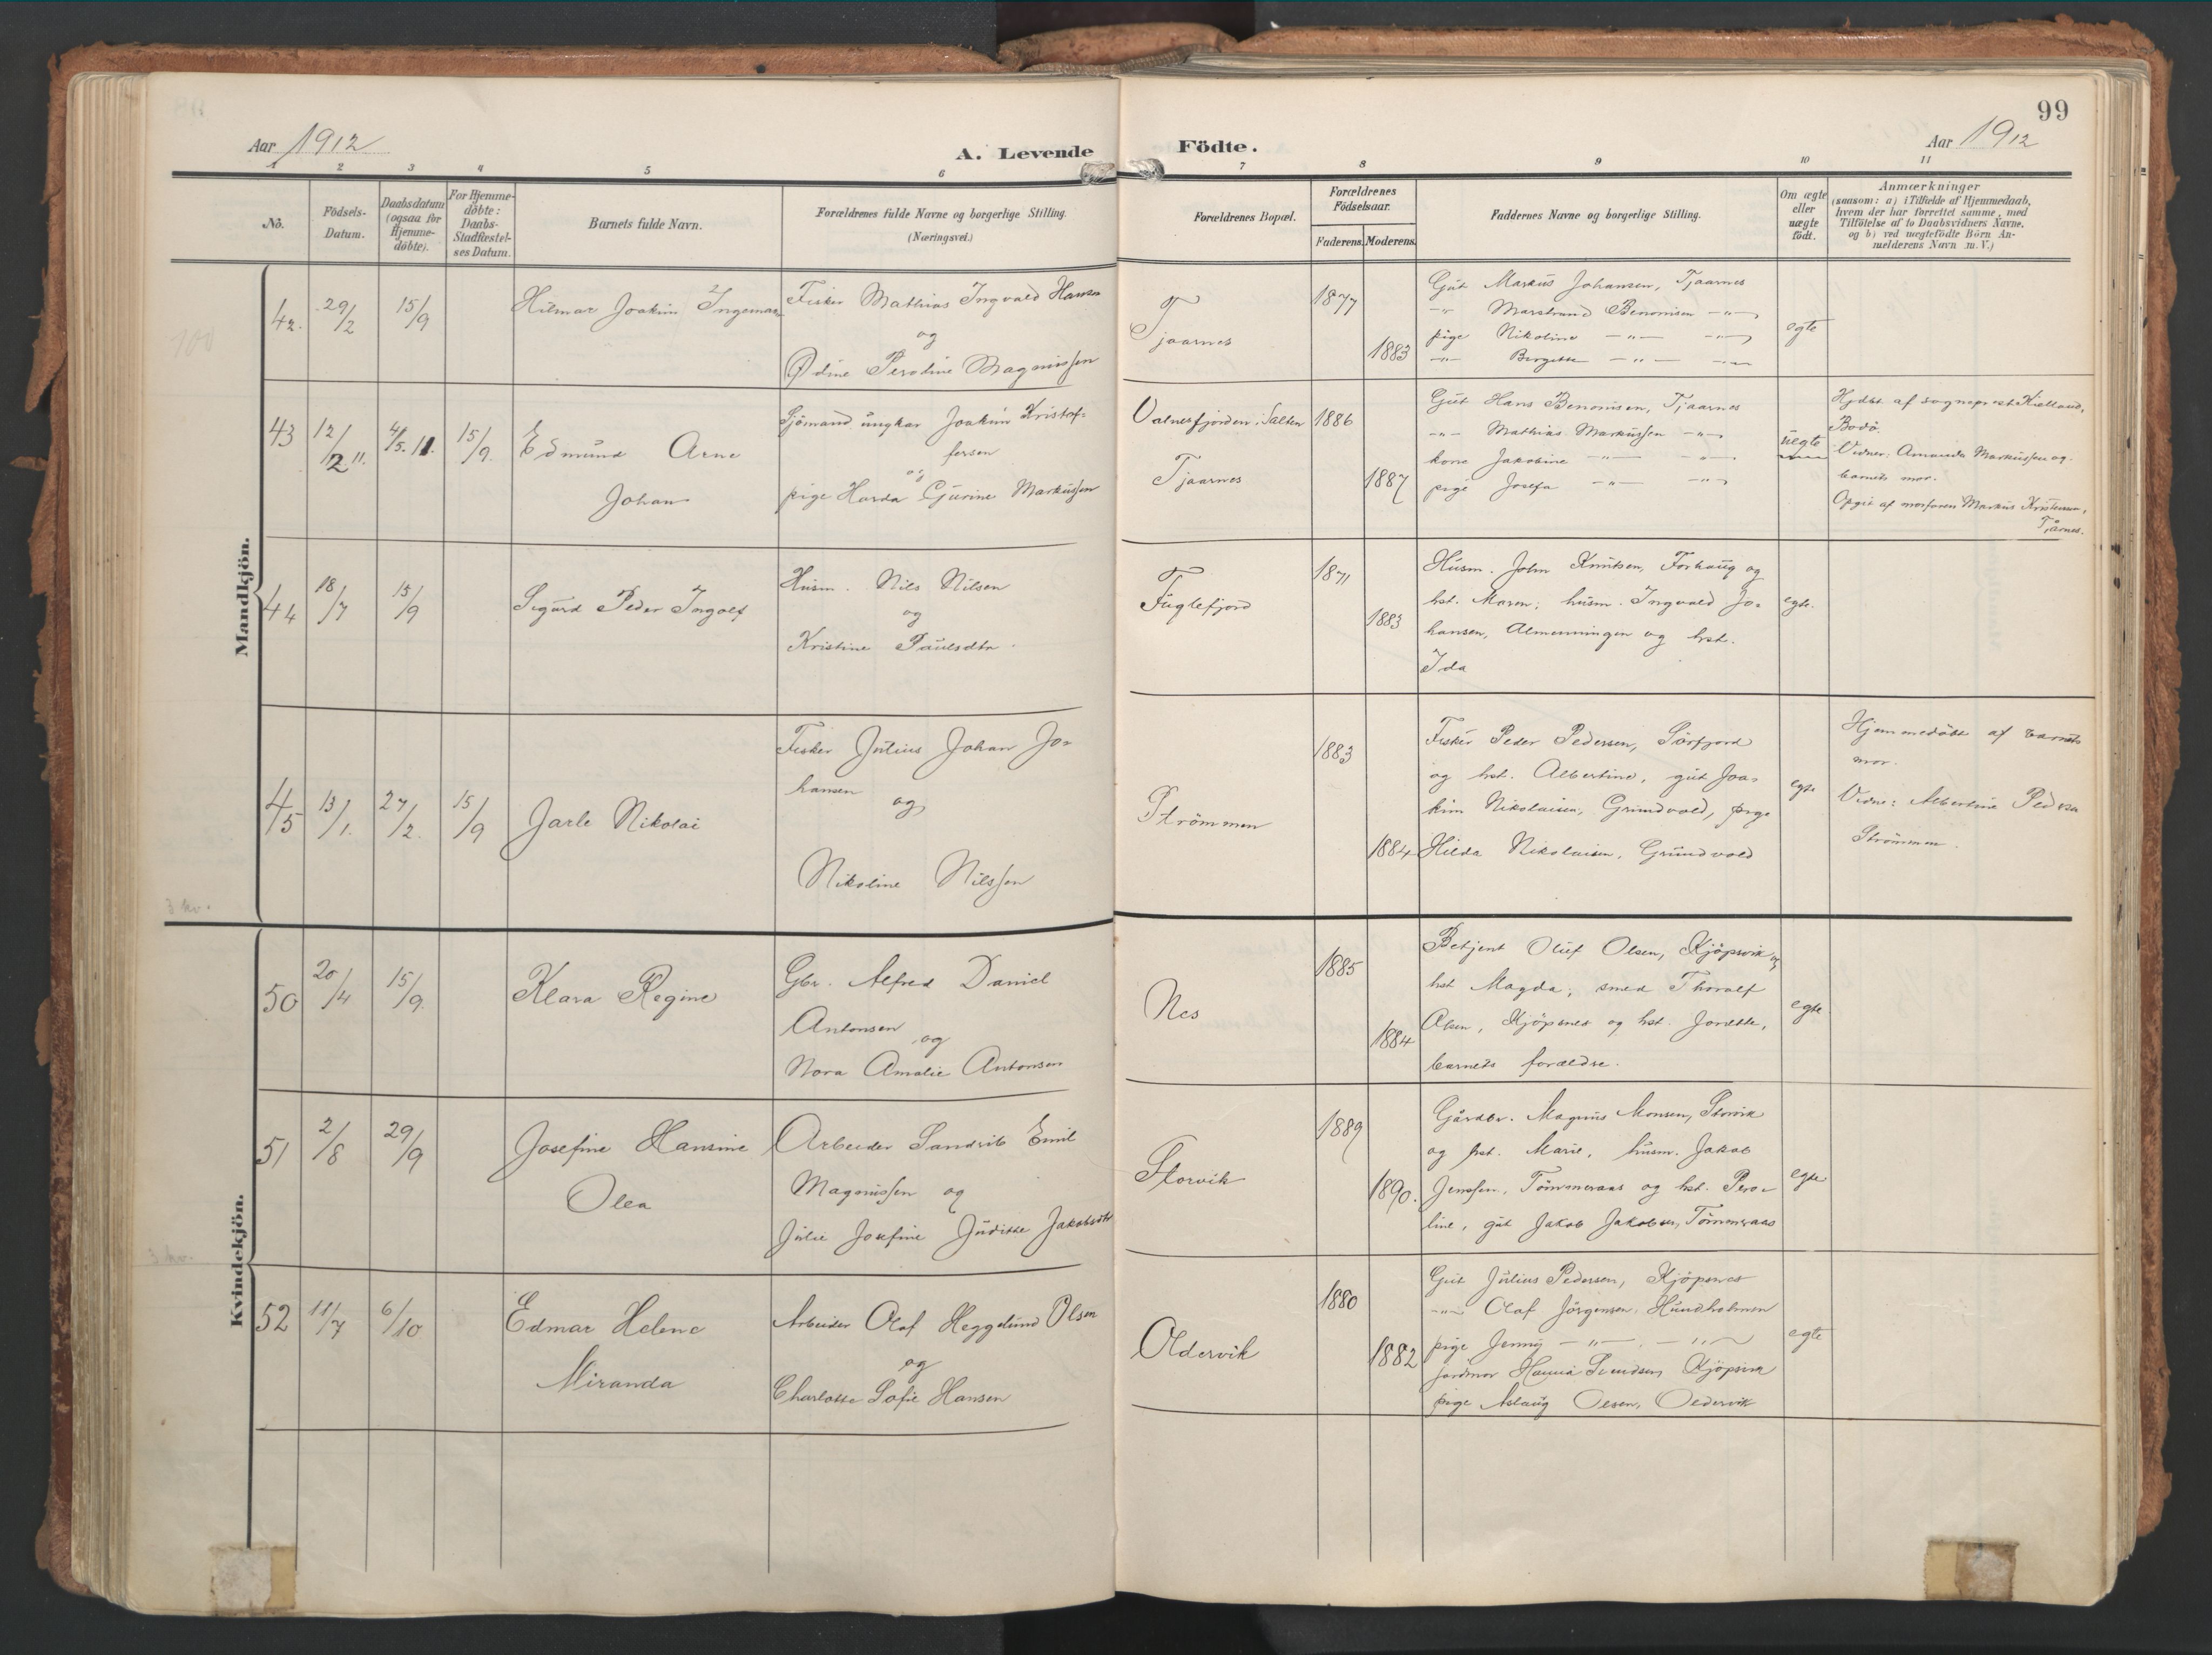 99
Aar 1912
A. Levende Födte.
Aar 1912
1 2 3 4 5 6 7 8 9 10 11
No.
Födsels-Datum.
Daabsdatum (ogsaa for Hjemme-döbte).
For Hjemme-döbte: Daabs-Stadfæstel-ses Datum.
Barnets fulde Navn.
Forældrenes fulde Navne og borgerlige Stilling.
(Næringsvei.)
Forældrenes Bopæl.
Forældrenes Födselsaar.
Faderens. Moderens.
Faddernes Navne og borgerlige Stilling.
Om ægte eller uægte födt.
Anmærkninger
(saasom: a) i Tilfælde af Hjemmedaab,
hvem der har forrettet samme, med
Tilföielse af to Daabsvidners Navne,
og b) ved uægtefödte Börn An-
melderens Navn m. V.)
Mandkjön.
100
42. 29/2 15/9 Hilmar Joakim Ingemar
Fisker Mathias Ingvald Hansen
og
Odine Peroline Magnussen
Tjaarnes
1877
1883
Gut Markus Johansen, Tjaarnes
-"- Marstrand Benonisen -"-
pige Nikoline -"- -"-
-"- Bergitte -"- -"-
egte
43 12/2 11. 4/5. 11. 15/9. Edmund Arne
Johan
Sjömand ungkar Joakim Kristof=
fersen
og
pige Harda Gurine Markussen
Valnesfjorden i Salten
Tjaarnes
1886
1887
Gut Hans Benonisen, Tjaarnes
-"- Mathias Markussen -"-
kone Jakobine -"- -"-
pige Josefa -"- -"-
uegte
Hjdöbt af sogneprest Kielland,
Bodö.
Vidner: Amanda Markussen og
barnets mor.
Opgit af morfaren Markus Kristensen,
Tjårnes.
44 18/7 15/9 Sigurd Peder Ingolf
Husm. Nils Nilsen
og
Kristine Paulsdtr.
Fuglefjord
1871
1883
Husm. John Knutsen, Forhaug og
hst. Maren; husm. Ingvald Jo=
hansen, Almenningen og hst.
Ida
egte.
45 13/1. 27/2. 15/9 Jarle Nikolai
Fisker Julius Johan Jo=
hansen
og
Nikoline Nilssen
Strömmen
1883
1884
Fisker Peder Pedersen, Sörfjord
og hst. Albertine, gut Joa=
kim Nikolaisen, Grundvold, pige
Hilda Nikolaisen, Grundvold
egte
Hjemmedöbt af barnets
mor.
Vidne: Albertine Pedersen
Strömmen.
3 kv.
Kvindekjön.
50 20/4 15/9. Klara Regine
Gbr. Alfred Daniel
Antonsen
og
Nora Amalie Antonsen
Nes
1885
1884
Betjent Oluf Olsen, Kjöpsvik og
hst Magda; smed Thoralf
Olsen, Kjöpsnes og hst. Jonette,
barnets forældre.
egte
51 2/8 29/9 Josefine Hansine
Olea
Arbeider Sandrik Emil
Magnussen og
Julie Josefine Juditte Jakobsdtr
Storvik
1889
1890.
Gårdbr. Magnus Monsen, Storvik
og hst. Marie, husm. Jakob
Jenssen, Tömmeraas og hst. Pero=
line, gut Jakob Jakobsen, Tömmeraas
egte
3 kv.
52 11/7 6/10 Edmar Helene
Miranda
Arbeider Olaf Heggelund Olsen
og
Charlotte Sofie Hansen
Oldervik
1880
1882
Gut Julius Pedersen, Kjöpsnes
-"- Olaf Jörgensen, Hundholmen
pige Jenny -"- -"-
jordmor Hanna Kjöpsvik
pige Aslaug Olsen, Oldervik
egte